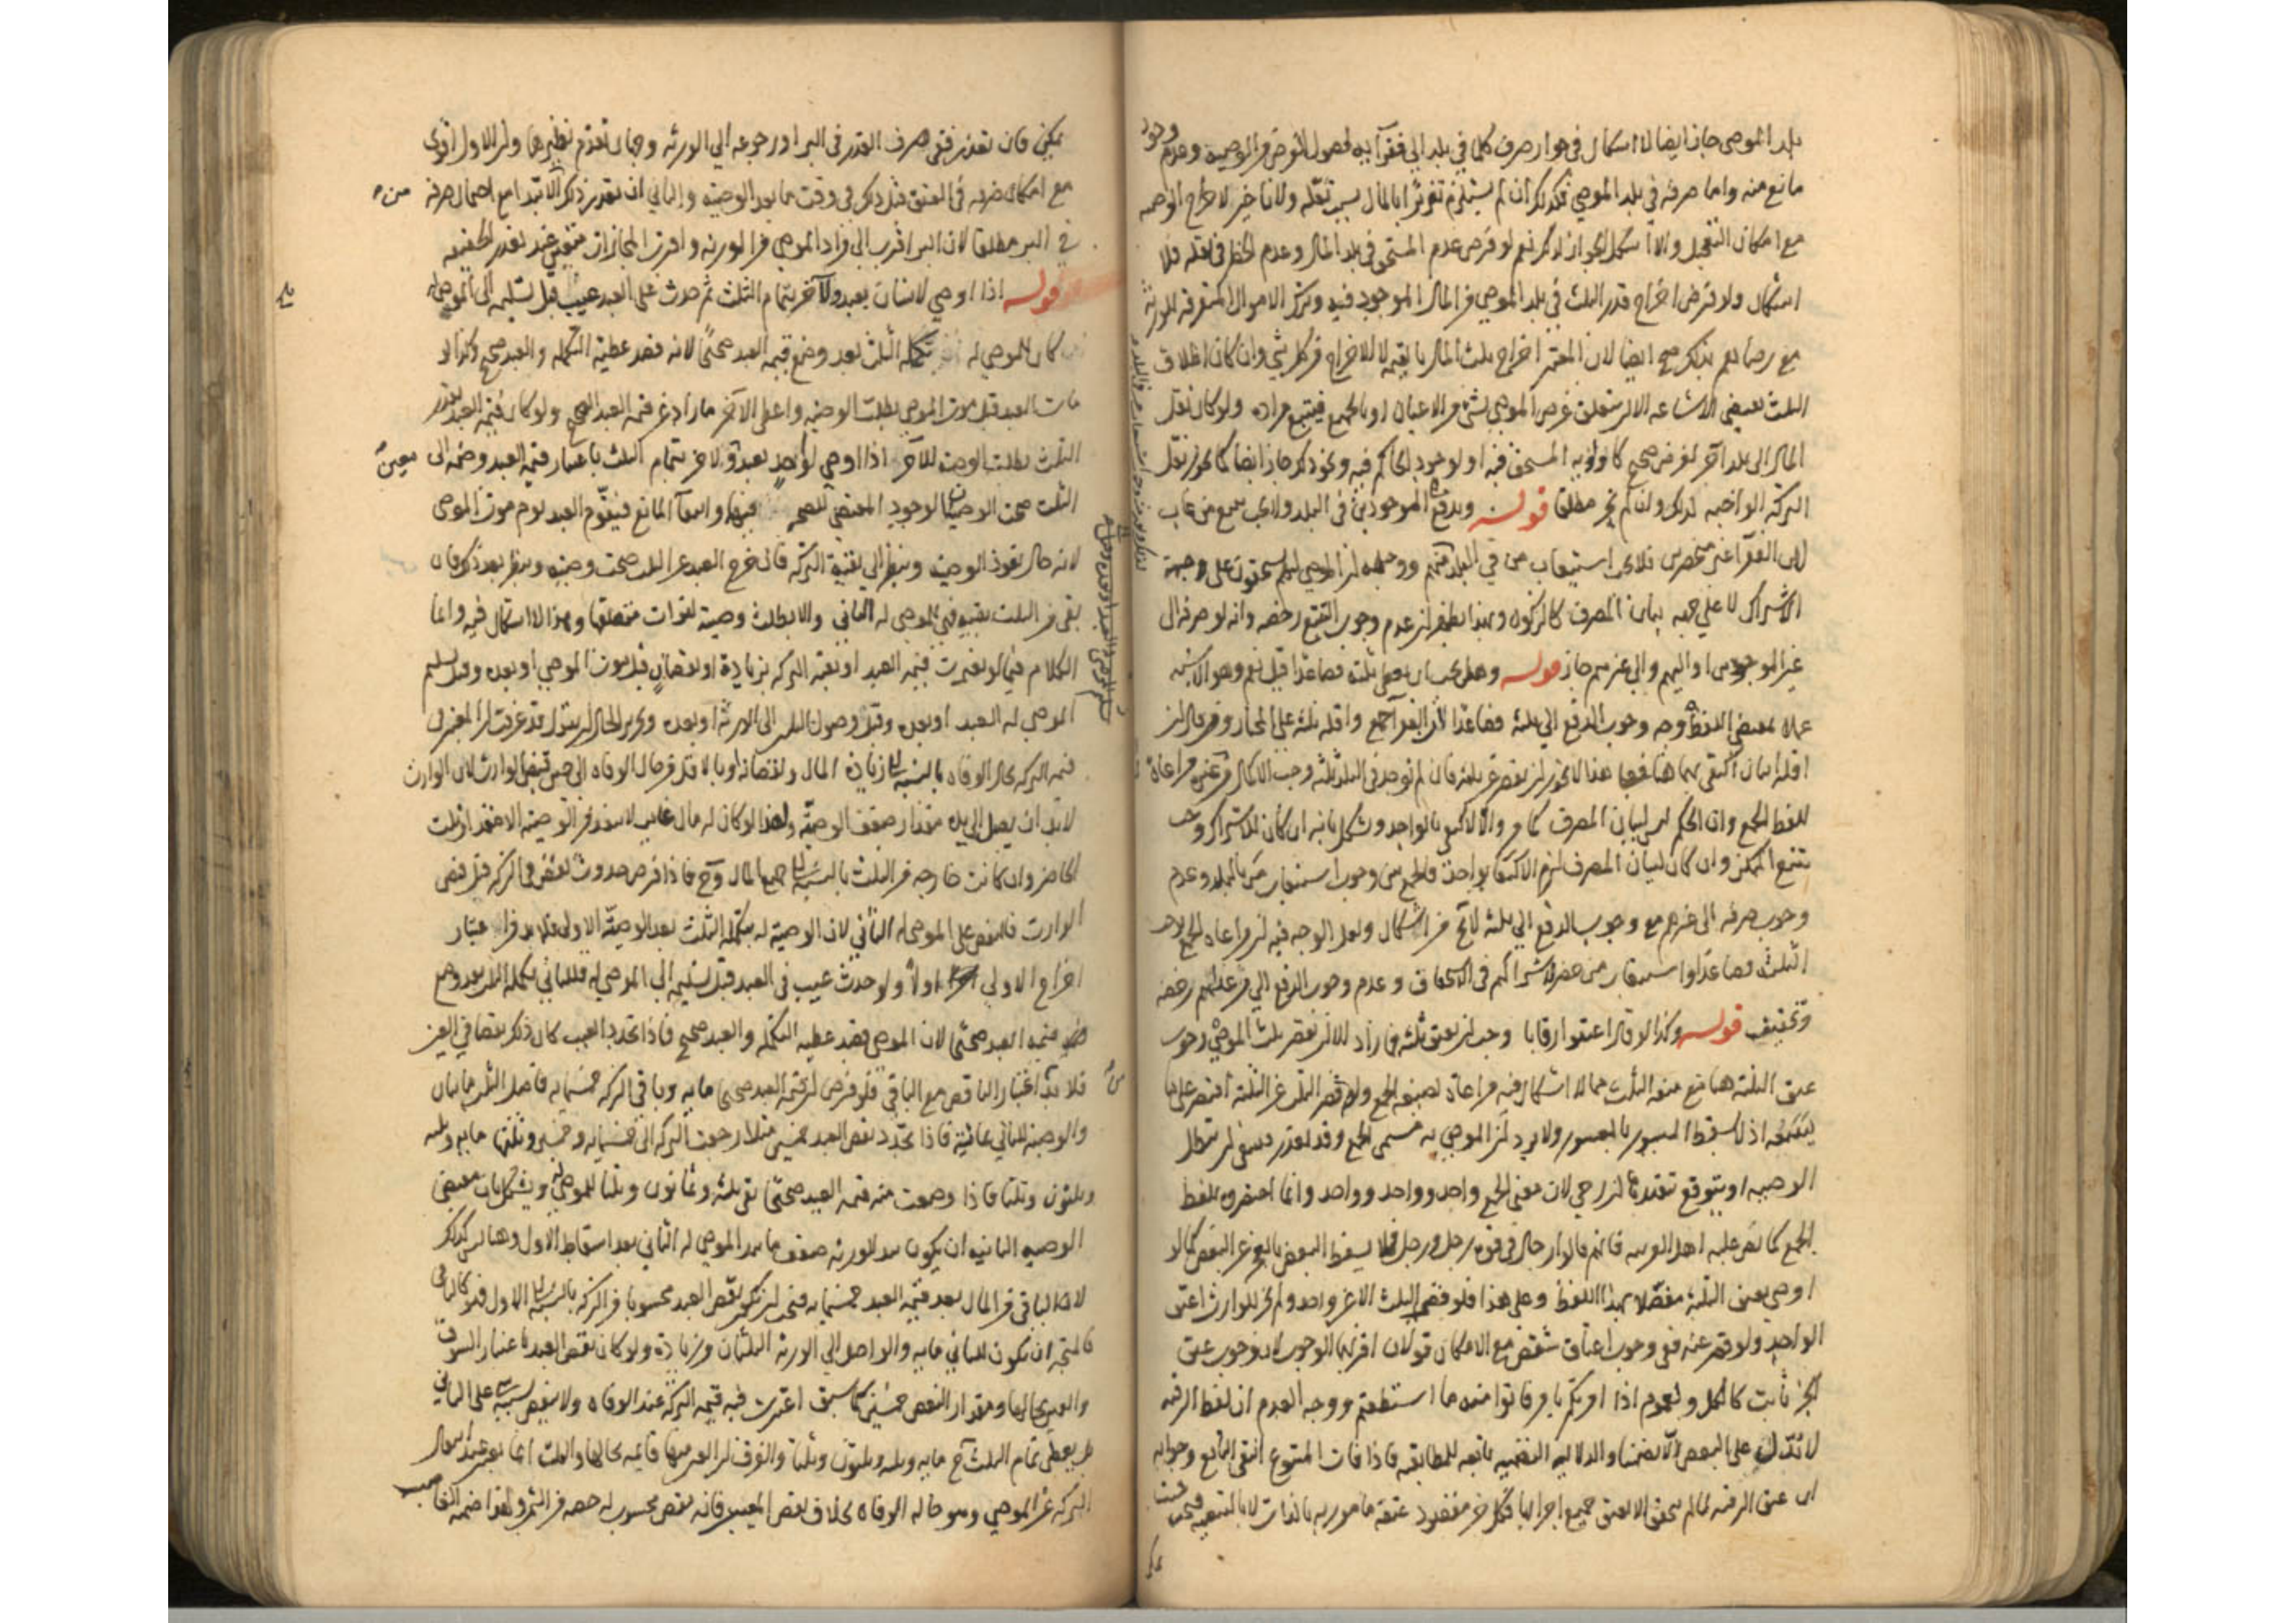 بلد الموصى جاز ايضا لا اشكال فى جواز صرف كلما فى بلد الى فقرآيه لحصول الغرض من الوصية وعدم وجود
مانع منه واما صرفه فى بلد الموصى فكذلك ان لم يستلزم تغريرا بالمال بسبب نقله ولا تاخير لاخراج الوصية
مع امكان التعجيل والا اشكل الجواز لذلك نعم لو فرض عدم المستحق فى بلد المال وعدم الخطر فى نقله فلا
اشكال ولو فرض اخراج قدر الثلث فى بلد الموصى من المال الموجود فيه وترك الاموال المتفرقة للورثة
مع رضاهم بذلك صح ايضا لان المعتبر اخراج ثلث المال بالقيمة لا الاخراج من كل شئ وان كان اطلاق
الثلث يقتضى الاشاعه الا ان يتعلق غرض الموصى بشئ من الاعيان او بالجميع فيتبع مراده ولو كان نقل
المال الى بلد آخر لغرض صحيح كاولوية المستحق فيه او لوجود الحاكم فيه ونحو ذلك جاز ايضا كما يجوز نقل
التركة الواجبة لذلك وان لم يجز مطلقا قوله ويدفع الى الموجودين فى البلد ولا يجب تتبع من غاب
لان الفقرآ غير منحصرين فلا يجب استيعاب من فى البلد منهم ووجهه ان الموصى لهم يستحقون على وجهة
الاشتراك لا على جهة بيان المصرف كالزكوة وبهذا يظهر ان عدم وجوب التتبع رخصة وانه لو صرفه الى
غير الموجودين او اليهم والى غيرهم جاز قوله وهل يجب ان يعطى ثلثة فصاعدا قيل نعم وهو الاشبه
عملا بمقتضى اللفظ وجه وجوب الدفع الى ثلثة فصاعدا لان الفقرآ جمع واقله ثلثة على المختار ومن قال ان
اقله اثنان اكتفى بهما هنا
للفظ الجمع وان الحكم ليس لبيان المصرف كما مر والا لاكتفى بالواحد ويشكل بانه ان كان للاشتراك وجب
تتبع الممكن وان كان لبيان المصرف لزم الاكتفا بواحد فالجمع بين وجوب استيعاب من بالبلد وعدم
وجوب صرفه الى غيرهم مع وجوب الدفع الى ثلثة لا يخ من اشكال ولعل الوجه فيه ان مراعاة الجمع توجب
الثلثة فصاعدا واستيعاب من حضر لاشتراكهم فى الاستحقاق وعدم وجوب الدفع الى من عداهم رخصة
وتخفيف قوله وكذا لو قال اعتقوا رقابا وجب ان يعتق ثلثة فما زاد الا ان يقصر ثلث الموصى وجوب
عتق الثلثة هنا مع سعة الثلث مما لا اشكال فيه مراعاة لصيغة الجمع ولو قصر الثلث عن الثلثة اقتصر على ما
يتسعه اذ لا يسقط الميسور بالمعسور ولا يرد ان الموصى به مسمى الجمع وقد تعذر فينبغى ان تبطل
الوصية او يتوقع تنفيذها ان رجى لان معنى الجمع واحد وواحد وواحد وانما اختصروه بلفظ
الجمع كما نص عليه اهل العربية فانهم قالوا رجال فى قوة رجل ورجل ورجل فلا يسقط البعض بالعجز عن البعض كما لو
اوصى بعتق الثلثة مفصلا بهذا اللفظ وعلى هذا فلو قصر الثلث الا عن واحد ولم يجز الوارث اعتق
الواحد ولو قصر عنه ففى وجوب اعتاق شقص مع الامكان قولان اقربهما الوجوب لان وجوب عتق
الجزء ثابت كالكل ولعموم اذا امرتكم بامر فاتوا منه ما استطعتم ووجه العدم ان لفظ الرقبة
لا تدل على البعض الا بالتضمن والدلالة التضمنية تابعة للمطابقة فاذا فات المتبوع انتفى التابع وجوابه
ان عتق الرقبة لما لم يتحقق الا بعتق جميع اجزائها فكل جزء مقصود عتقه مامور به بالذات لا بالتبعية فيجب حيث
يمكن
يمكن فان تعذر ففى صرف القدر فى البر او رجوعه الى الورثة وجهان تقدم نظيرهما ولعل الاول اقوى
مع امكان صرفه فى العتق قبل ذلك فى وقت ما بعد الوصية والثانى ان تعذر ذلك ابتدا مع احتمال صرفه
فى البر مطلقا لان البر اقرب الى مراد الموصى من الورثة واقرب المجازات متعين عند تعذر الحقيقة
قوله اذا اوصى لانسان بعبد ولآخر بتمام الثلث ثم حدث فى العبد عيب قبل تسليمه الى الموصى له
كان للموصى له تكملة الثلث بعد وضع قيمة العبد صحيحا لانه قصد عطية التكملة والعبد صحيح وكذا لو
مات العبد قبل موت الموصى بطلت الوصية واعطى الآخر ما زاد عن قيمة العبد الصحيح ولو كان قيمة العبد بقدر
الثلث بطلت الوصية للآخر اذا اوصى لواحد بعبد ولآخر بتمام الثلث باعتبار قيمة العبد وضمه الى
الثلث صحت الوصيتان لوجود المقتضى للصحة فيهما وانتفآ المانع فيقوم العبد يوم موت الموصى
لانه حال نفوذ الوصية وينظر الى بقية التركة فان خرج العبد من الثلث صحت وصيته وينظر بعد ذلك فان
بقى من الثلث بقية فهى للموصى له الثانى والا بطلت وصيته لفوات متعلقها وهذا لا اشكال فيه وانما
الكلام فيما لو تغيرت قيمة العبد او بقية التركة بزيادة او نقصان قبل موت الموصى او بعده وقبل تسليم
الموصى له العبد او بعده وقبل وصول المال الى الورثة او بعده وتحرير الحال ان نقول قد عرفت ان المعتبر فى
قيمة التركة بحال الوفاة بالنسبة الى زيادة المال ونقصانه او بالاقل من حال الوفاة الى حين قبض الوارث لان الوارث
لا بد ان يصل الى يده مقدار ضعف الوصية ولهذا لو كان له مال غايب لا ينفذ من الوصية الا مقدار ثلث
الحاضر وان كانت خارجة من الثلث بالنسبة الى جميع المال وح فاذا فرض حدوث نقص فى التركة قبل قبض
الوارث فالنقص على الموصى له الثانى لان الوصية له بتكملة الثلث بعد الوصية الاولى فلا بد من اعتبار
اخراج الاولى اولا ولو حدث عيب فى العبد قبل تسليمه الى الموصى له فللثانى تكملة الثلث بعد وضع
قيمة العبد صحيحا لان الموصى قصد عطية التكملة والعبد صحيح فاذا تجدد العيب كان ذلك نقصا فى العين
فلا بد من اعتبار الناقص مع الباقى فلو فرض ان قيمة العبد صحيحا مايه وباقى التركة خمسمايه فاصل الثلث مايتان
والوصية للثانى بمائة فاذا تجدد نقص العبد خمسين مثلا رجعت التركة الى خمسمايه وخمسين وثلثها مايه وثلثه
وثلثون وثلثا فاذا وضعت منه قيمة العبد صحيحا بقى ثلثة وثمانون وثلثا للموصى له ويشكل بان مقتضى
الوصية الثانية ان يكون بيد الورثة ضعف ما بيد الموصى له الثانى بعد اسقاط الاول وهنا ليس كذلك
لان الباقى من المال بعد قيمة العبد خمسمايه فيجب ان يكون نقص العبد محسوبا من التركة بالنسبة الى الاول فهو كالباقى
فالمتجه ان يكون للثانى مايه والواصل الى الورثة الثلثان وزيادة ولو كان نقص العبد باعتبار السوق
والعين بحالها ومقدار النقص خمسين كما سبق اعتبرت فيه قيمة التركة عند الوفاة ولا ينقص بسببه على الثانى
بل يعطى تمام الثلث ح مايه وثلثه وثلثون وثلثا والفرق ان العين فيها قائمة بحالها والثلث انما يعتبر عند انتقال
التركة عن الموصى وهو حالة الوفاة بخلاف نقص المعيب فانه نقص محسوب له حصة من الثمن ولهذا ضمنه الغاصب